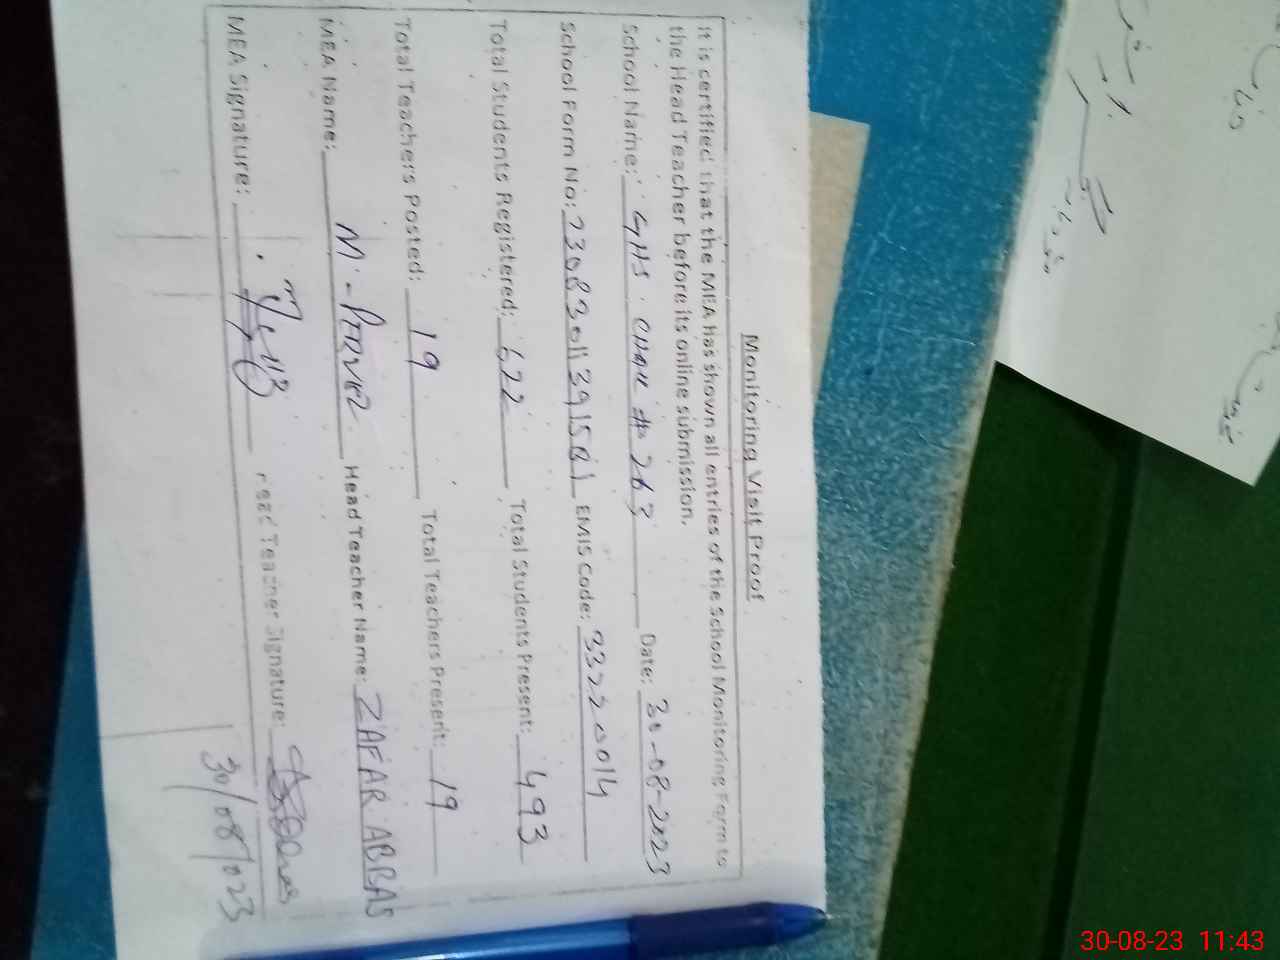 Monitoring Visit Proof
It is certified that the MEA has shown all entries of the School Monitoring Form to
the Head Teacher before its online submission.
School Name: GHS CHAK # 263 Date: 30-08-2023
School Form No: EMIS Code: 33220014
Total Students Registered: 622 Total Students Present: 493
Total Teachers Posted: 19 Total Teachers Present: 19
MEA Name: M. Head Teacher Name: ZAFAR ABBAS
MEA Signature: Head Teacher Signature:
30/08/023
30-08-23 11:43